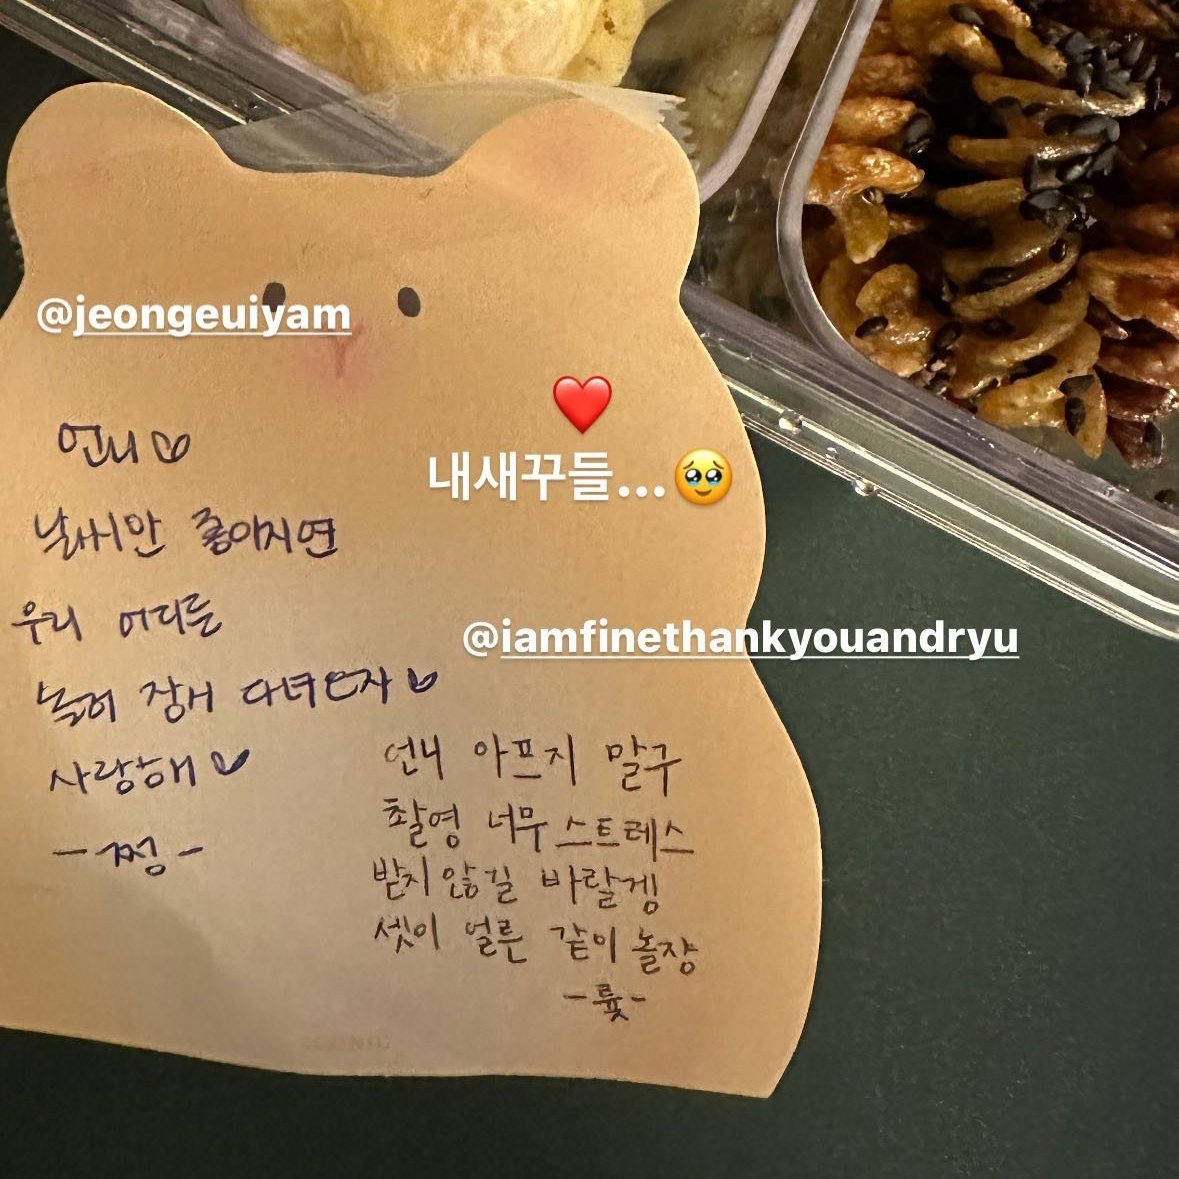 @jeongeuiyam
언니♡
날씨만 좋아지면
우리 어디든
놀러 잔뜩 다녀오자♡
사랑해♡
-쩡-
❤️
내새꾸들...🥹
@iamfinethankyouandryu
언니 아프지 말구
촬영 너무 스트레스
받지 않길 바랄겜
셋이 얼른 같이 놀쟝
-륮-